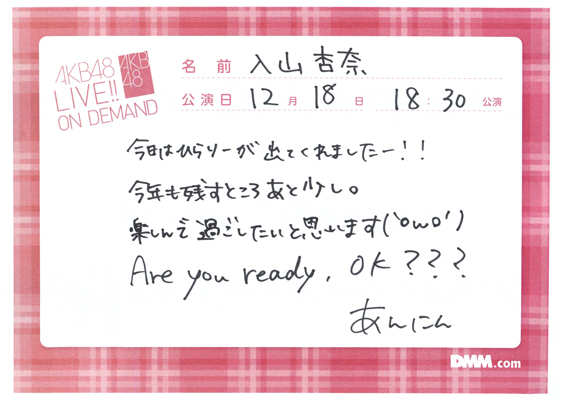 AKB48
LIVE!!
ON DEMAND
AKB
48
名前 入山杏奈
公演日 12月18日 18:30公演
今日はひらりーが出てくれましたー!!
今年も残すところあと少し。
楽しんで過ごしたいと思います('oωo')
Are you ready, OK???
あんにん
DMM.com